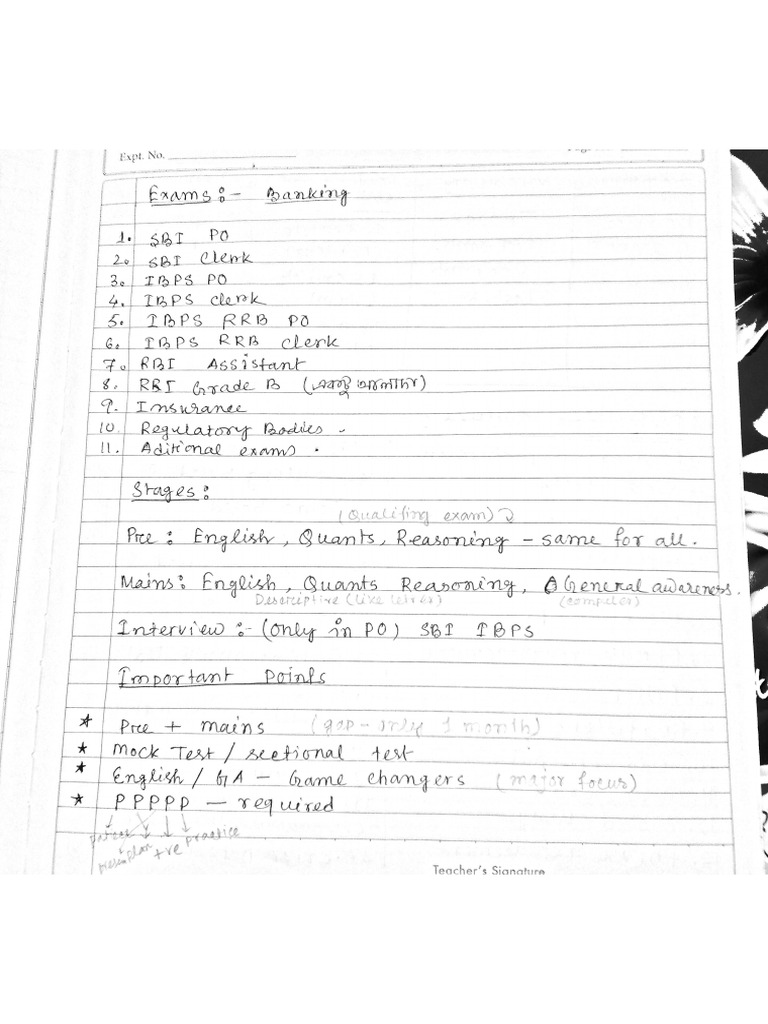 Expt. No.
Exams:- Banking
1. SBI PO
2. SBI Clerk
3. IBPS PO
4. IBPS clerk
5. IBPS RRB PO
6. IBPS RRB clerk
7. RBI Assistant
8. RBI Grade B (একটু আলাদা)
9. Insurance
10. Regulatory Bodies.
11. Aditional exams.
Stages:
(Qualifing exam)
Pre: English, Quants, Reasoning - same for all.
Mains: English, Quants Reasoning, General awareness.
Descriptive (like letter) (computer)
Interview:- (only in PO) SBI IBPS
Important Points
* Pre + mains (gap - only 1 month)
* Mock Test / sectional test
* English / GA - Game changers (major focus)
* PPPPP - required
Plan +ve Practice
Teacher's Signature